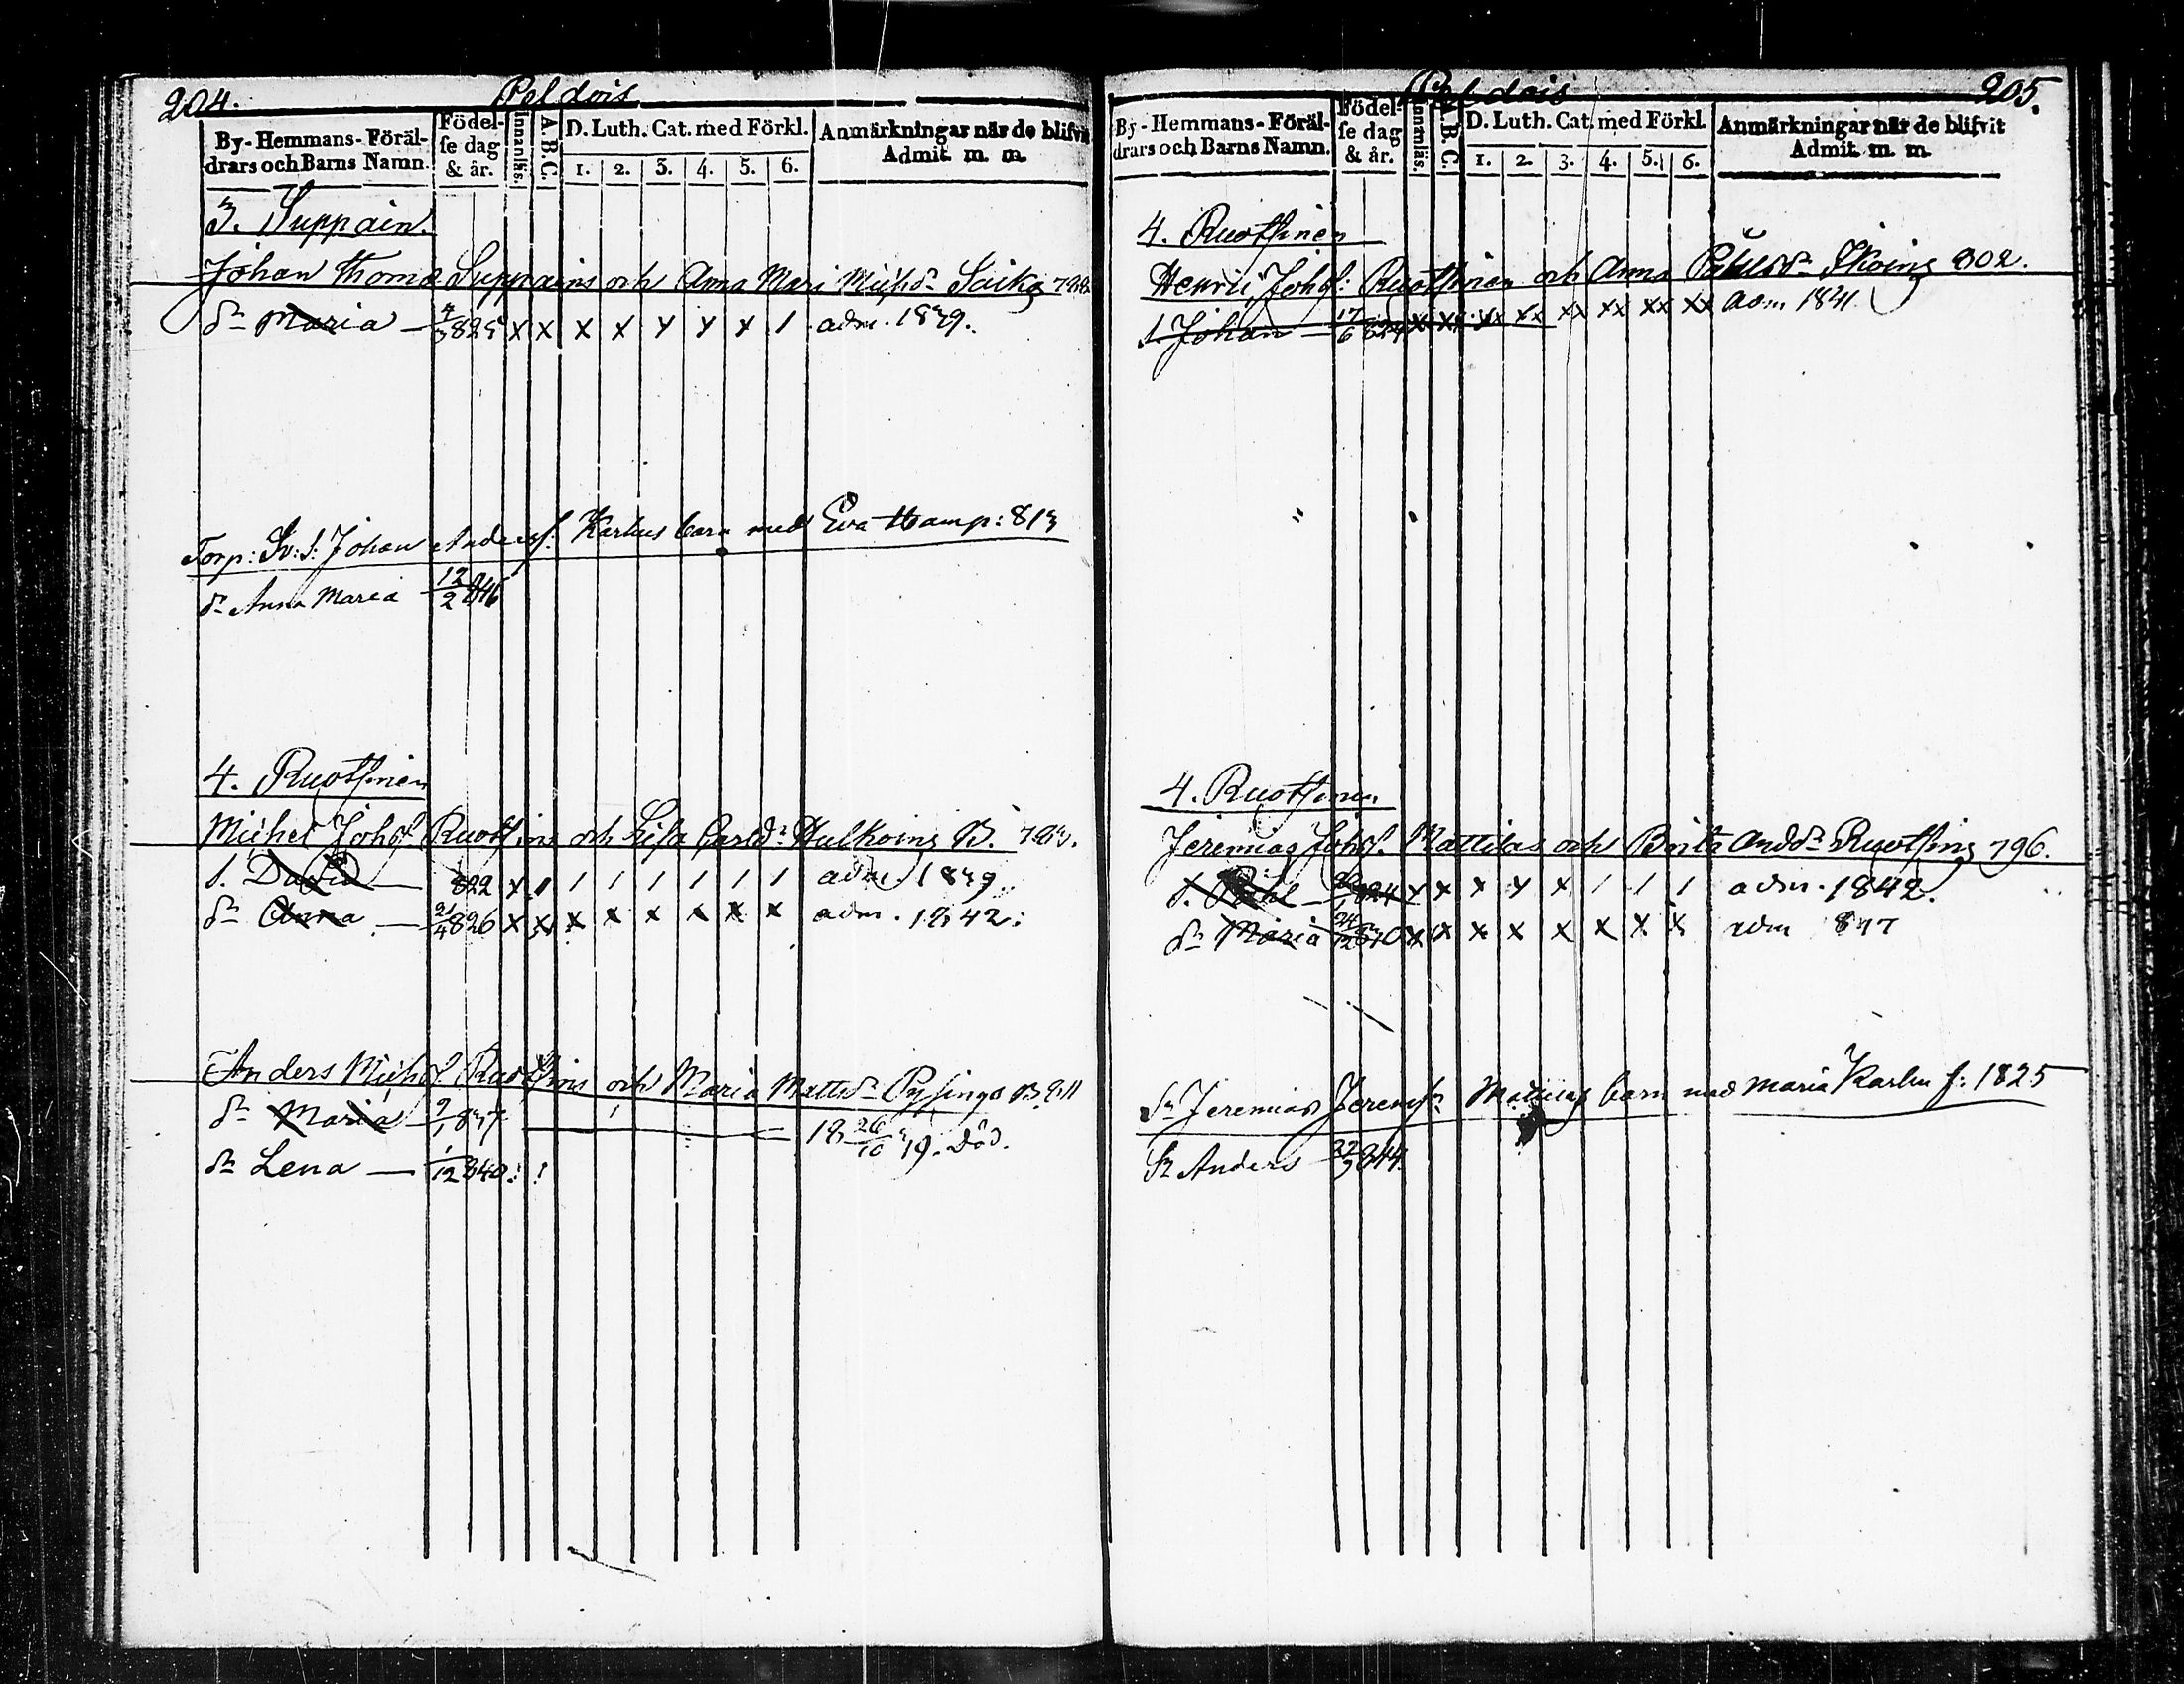 204. Peldois
By-Hemmans-Föräl-
drars och Barns Namn.
Födel-
se dag
& år.
Innanläs.
A.B.C.
D. Luth. Cat. med Förkl.
1. 2. 3. 4. 5. 6.
Anmärkningar når de blifvit
Admit. m. m.
3. Suppain.
Johan Thoms Suppains och Anna Mari Mich.dr Saiks
dr Maria — 825 x x x x x x x 1 adm. 1839.
Torp: Sv: s: Johan Anders: Karhus barn med Eva Hamp: 813
dr Anna Maria 12/2 846
4. Ruotsinen
Michel Johs. Ruotsins och Lisa Carlsdr Hulkoins B. 783.
s. David — 822 x 1 1 1 1 1 1 1 adm 1839
dr Anna — 21/4 826 x x x x x x x x adm. 1842.
Anders Michs. Ruotsins och Maria Mattsdr B. 811
dr Maria 9/1 837 — 1 — 18 26/10 39. Död.
dr Lena — 1/12 840. 1
Peldois 205.
By-Hemmans-Föräl-
drars och Barns Namn.
Födel-
se dag
& år.
Innanläs.
A.B.C.
D. Luth. Cat. med Förkl.
1. 2. 3. 4. 5. 6.
Anmärkningar når de blifvit
Admit. m. m.
4. Ruotsinen
Henric Johs: Ruotsinen och Anna 802.
s. Johan — 17/6 824 x xx xx xx xx xx xx xx adm 1841.
4. Ruotsinen
Jeremias Johs. Mattilas och Brita Andsdr Ruotsins 796.
s. Påhl — 824 x x x x x 1 1 1 adm. 1842.
dr Maria 24/12 830 x x x x x x x x adm 847
Sn Jeremias Jeremsn Mattilas barn med Maria Karlu f: 1825
Sn Anders 22/3 844.